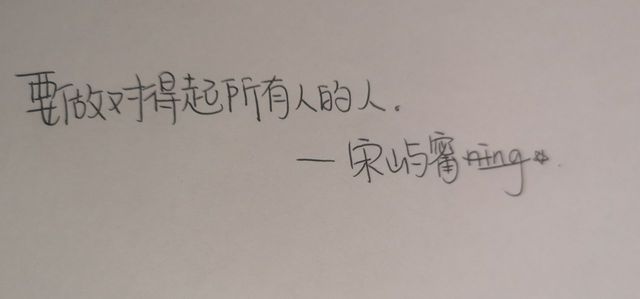 要做对得起所有人的人.
—宋屿甯 ning☆.